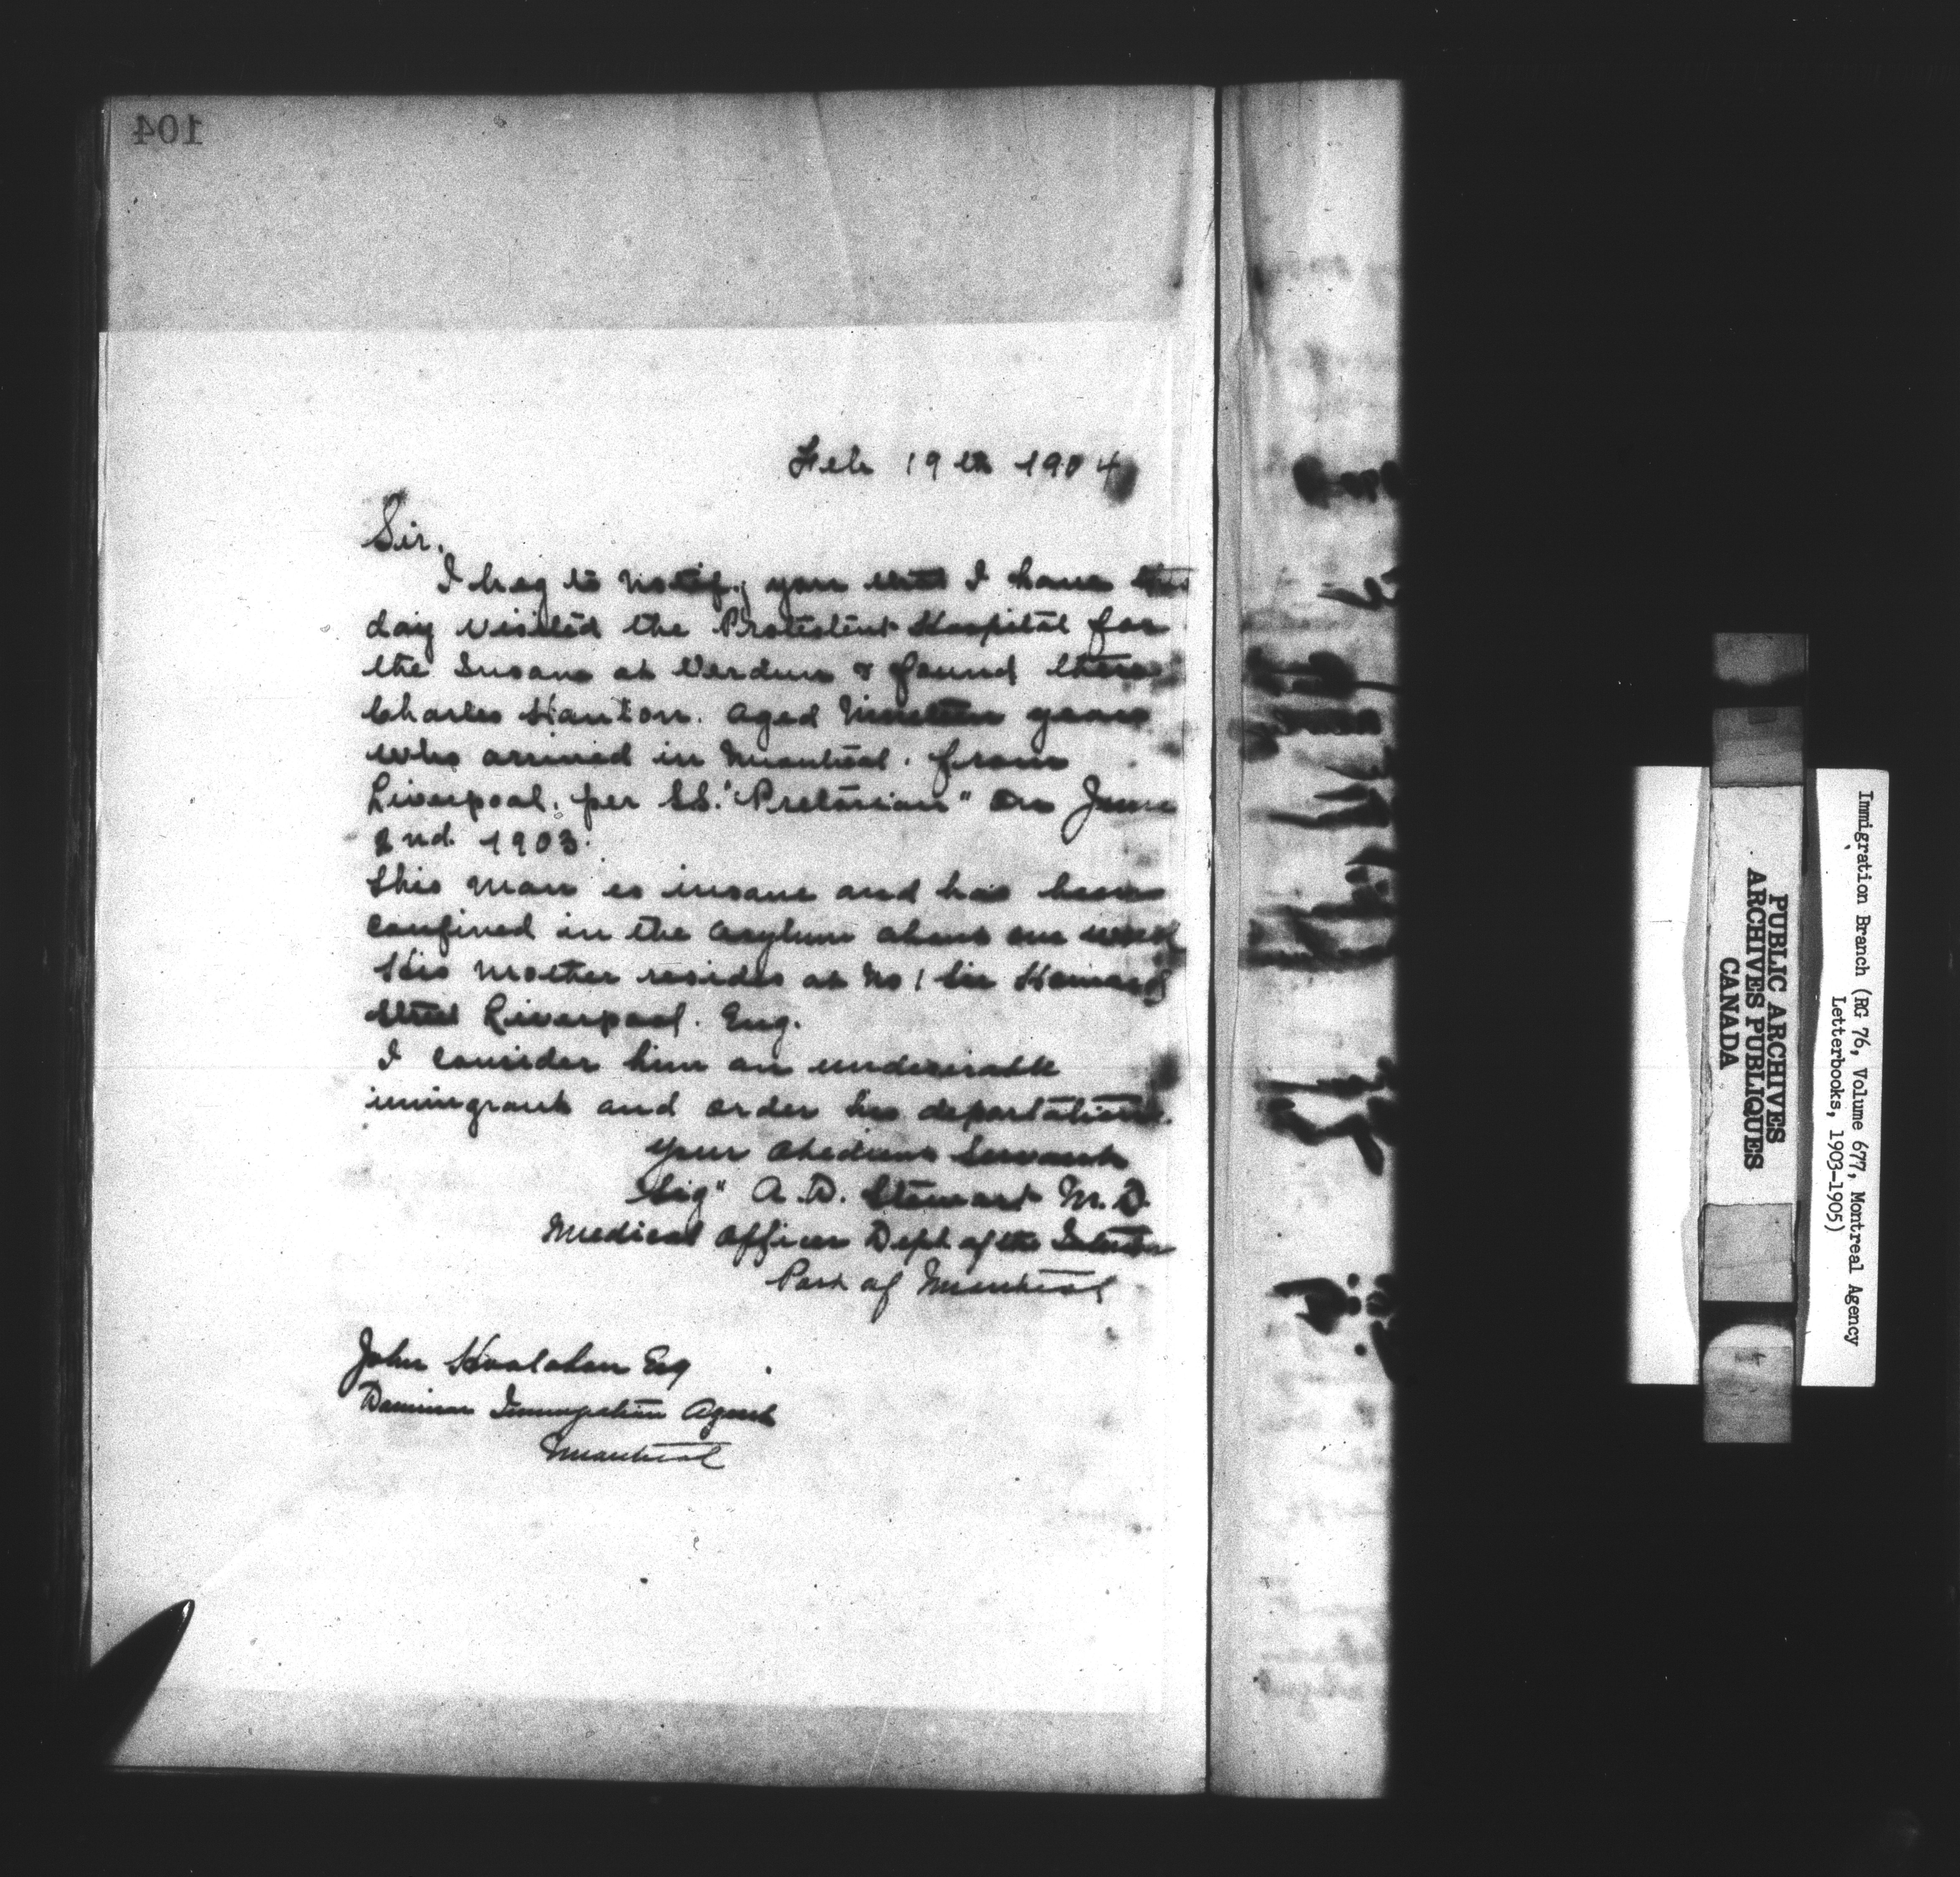 104
Feb 19th 1904
Sir.
I beg to notify you that I have this
day visited the Protestant Hospital for
the Insane at Verdun & found there
Charles Stanton. aged Nineteen years
who arrived in Montreal. from
Liverpool. per SS. "Pretorian" on June
2nd 1903.
This man is insane and has been
confined in the asylum about one week
His mother resides at No 1 Sir
Street Liverpool. Eng.
I consider him an undesirable
immigrant and order his deportation.
Your Obedient Servant
Sig" A. D. Stewart M. D.
Medical Officer Dept of the Interior
Port of Montreal
John Hoolahan Esq
Dominion Immigration Agent
Montreal
Immigration Branch (RG 76, Volume 677, Montreal Agency
Letterbooks, 1903-1905)
PUBLIC ARCHIVES
ARCHIVES PUBLIQUES
CANADA